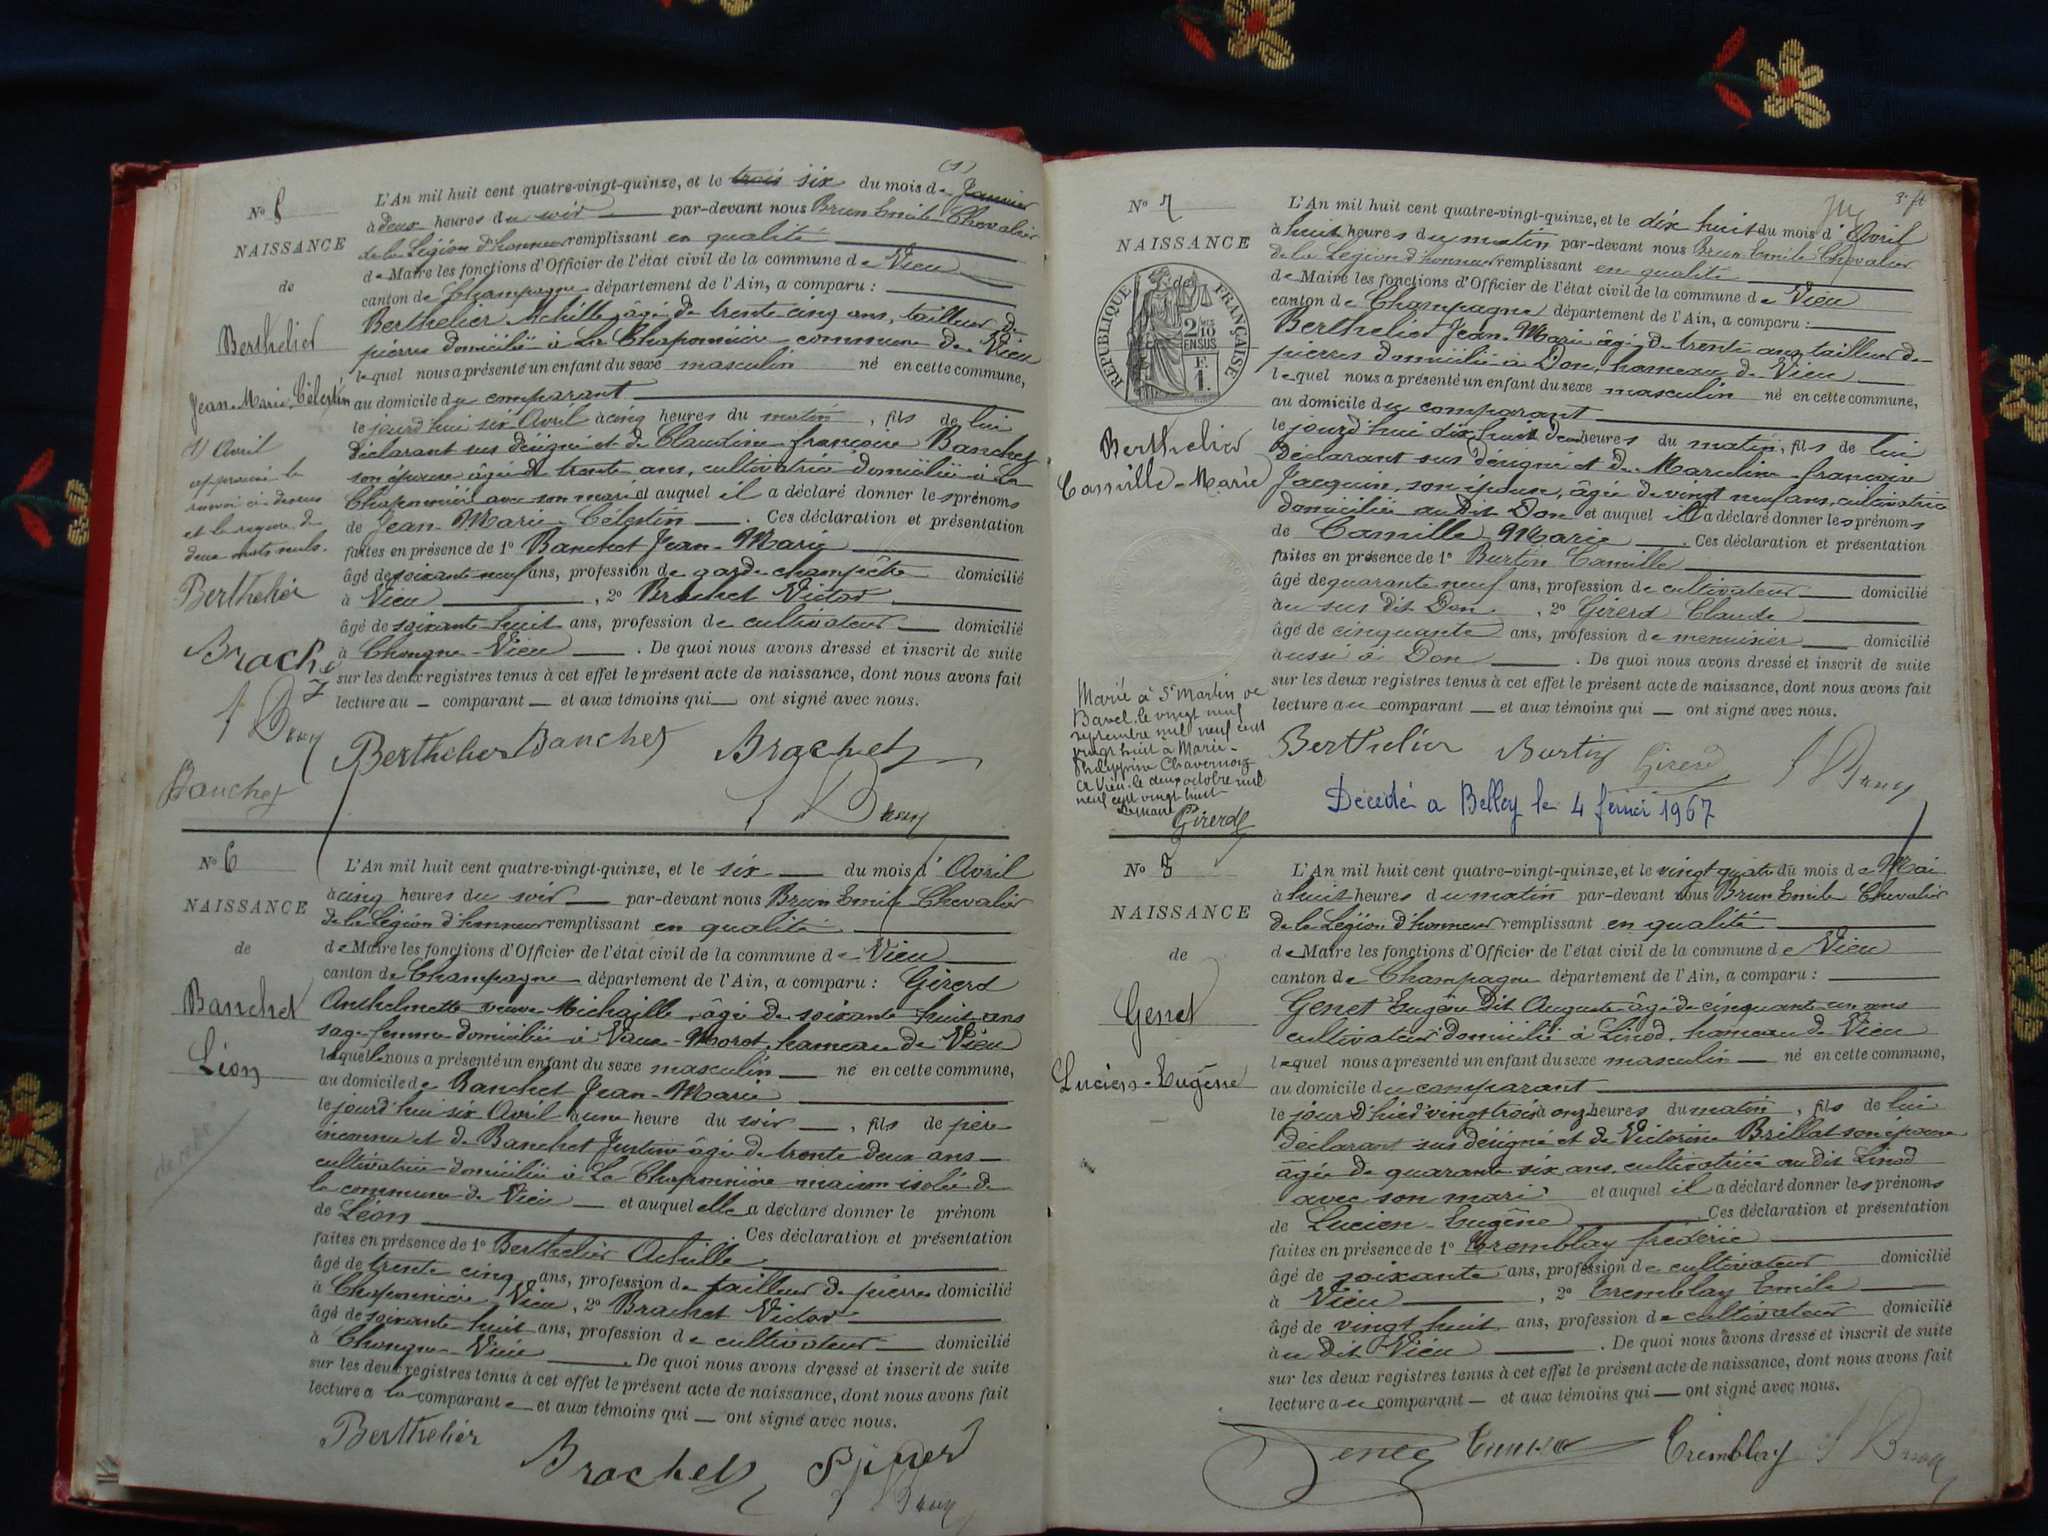 (1)
No 5
NAISSANCE
de
Berthelier
Jean-Marie-Célestin
L'An mil huit cent quatre-vingt-quinze, et le trois six du mois de Janvier
à deux heures du soir par-devant nous Brun Emile Chevalier
de la Légion d'honneur remplissant en qualité
de Maire les fonctions d'Officier de l'état civil de la commune de Vieu
canton de Champagne département de l'Ain, a comparu :
Berthelier Achille âgé de trente cinq ans, tailleur de
pierres domicilié à La Chaponnière commune de Vieu
lequel nous a présenté un enfant du sexe masculin né en cette commune,
au domicile du comparant
le jourd'hui six Avril à cinq heures du matin, fils de lui
déclarant sus désigné et de Claudine françoise Banchet
son épouse âgée de trente ans, cultivatrice domiciliée à La
Chaponnière avec son mari et auquel il a déclaré donner les prénoms
de Jean-Marie-Célestin. Ces déclaration et présentation
faites en présence de 1° Banchet Jean-Marie
âgé de soixante neuf ans, profession de garde champêtre domicilié
à Vieu, 2° Brachet Victor
âgé de soixante-huit ans, profession de cultivateur domicilié
à Chongne-Vieu. De quoi nous avons dressé et inscrit de suite
sur les deux registres tenus à cet effet le présent acte de naissance, dont nous avons fait
lecture au comparant et aux témoins qui ont signé avec nous.
1) Avril
approuvé le
renvoi ci-dessus
et la rayure de
deux mots nuls.
Berthelier
Brachet
Brun
Banchet
Berthelier Banchet Brachet
Brun
No 6
NAISSANCE
de
Banchet
Léon
L'An mil huit cent quatre-vingt-quinze, et le six du mois d'Avril
à cinq heures du soir par-devant nous Brun Emile Chevalier
de la Légion d'honneur remplissant en qualité
de Maire les fonctions d'Officier de l'état civil de la commune de Vieu
canton de Champagne département de l'Ain, a comparu : Girerd
Anthelmette veuve Michaille, âgée de soixante huit ans
sage-femme domiciliée à Vaux-Moret, hameau de Vieu
laquelle nous a présenté un enfant du sexe masculin né en cette commune,
au domicile de Banchet Jean-Marie
le jourd'hui six Avril à une heure du soir, fils de père
inconnu et de Banchet Justine âgée de trente deux ans
cultivatrice domiciliée à La Chaponnière maison isolée de
la commune de Vieu et auquel elle a déclaré donner le prénom
de Léon. Ces déclaration et présentation
faites en présence de 1° Berthelier Achille
âgé de trente cinq ans, profession de tailleur de pierres domicilié
à Chaponnière Vieu, 2° Brachet Victor
âgé de soixante-huit ans, profession de cultivateur domicilié
à Chongne-Vieu. De quoi nous avons dressé et inscrit de suite
sur les deux registres tenus à cet effet le présent acte de naissance, dont nous avons fait
lecture à la comparante et aux témoins qui ont signé avec nous.
Berthelier Brachet Girerd
Brun
3e ft
No 7
NAISSANCE
de
RÉPUBLIQUE FRANÇAISE
2/10
EN SUS
F.
1.
Berthelier
Camille-Marie
L'An mil huit cent quatre-vingt-quinze, et le dix huit du mois d'Avril
à huit heures du matin par-devant nous Brun Emile Chevalier
de la Légion d'honneur remplissant en qualité
de Maire les fonctions d'Officier de l'état civil de la commune de Vieu
canton de Champagne département de l'Ain, a comparu :
Berthelier Jean-Marie âgé de trente ans, tailleur de
pierres domicilié à Don, hameau de Vieu
lequel nous a présenté un enfant du sexe masculin né en cette commune,
au domicile du comparant
le jourd'hui dix huit à deux heures du matin, fils de lui
déclarant sus désigné et de Marceline françoise
Jacquin, son épouse, âgée de vingt neuf ans, cultivatrice
domiciliée au dit Don et auquel il a déclaré donner les prénoms
de Camille Marie. Ces déclaration et présentation
faites en présence de 1° Burtin Camille
âgé de quarante neuf ans, profession de cultivateur domicilié
au sus dit Don, 2° Girerd Claude
âgé de cinquante ans, profession de menuisier domicilié
aussi à Don. De quoi nous avons dressé et inscrit de suite
sur les deux registres tenus à cet effet le présent acte de naissance, dont nous avons fait
lecture au comparant et aux témoins qui ont signé avec nous.
Marié à St Martin de
Bavel le vingt neuf
septembre mil neuf cent
vingt huit à Marie-
Philippine Chavernoz
A Vieu, le deux octobre mil
neuf cent vingt huit
Le maire
Girerd
Berthelier Burtin Girerd Brun
Décédé a Belley le 4 février 1967
No
NAISSANCE
de
Genet
Lucien-Eugène
L'An mil huit cent quatre-vingt-quinze, et le vingt quatre du mois de Mai
à huit heures du matin par-devant nous Brun Emile Chevalier
de la Légion d'honneur remplissant en qualité
de Maire les fonctions d'Officier de l'état civil de la commune de Vieu
canton de Champagne département de l'Ain, a comparu :
Genet Eugène dit Auguste âgé de cinquante un ans
cultivateur domicilié à Linod, hameau de Vieu
lequel nous a présenté un enfant du sexe masculin né en cette commune,
au domicile du comparant
le jour d'hier vingt trois à onze heures du matin, fils de lui
déclarant sus désigné et de Victorine Brillat son épouse
âgée de quarante six ans, cultivatrice au dit Linod
avec son mari et auquel il a déclaré donner les prénoms
de Lucien-Eugène. Ces déclaration et présentation
faites en présence de 1° Tremblay frédéric
âgé de soixante ans, profession de cultivateur domicilié
à Vieu, 2° Tremblay Emile
âgé de vingt huit ans, profession de cultivateur domicilié
au dit Vieu. De quoi nous avons dressé et inscrit de suite
sur les deux registres tenus à cet effet le présent acte de naissance, dont nous avons fait
lecture au comparant et aux témoins qui ont signé avec nous.
Genet Tremblay Brun